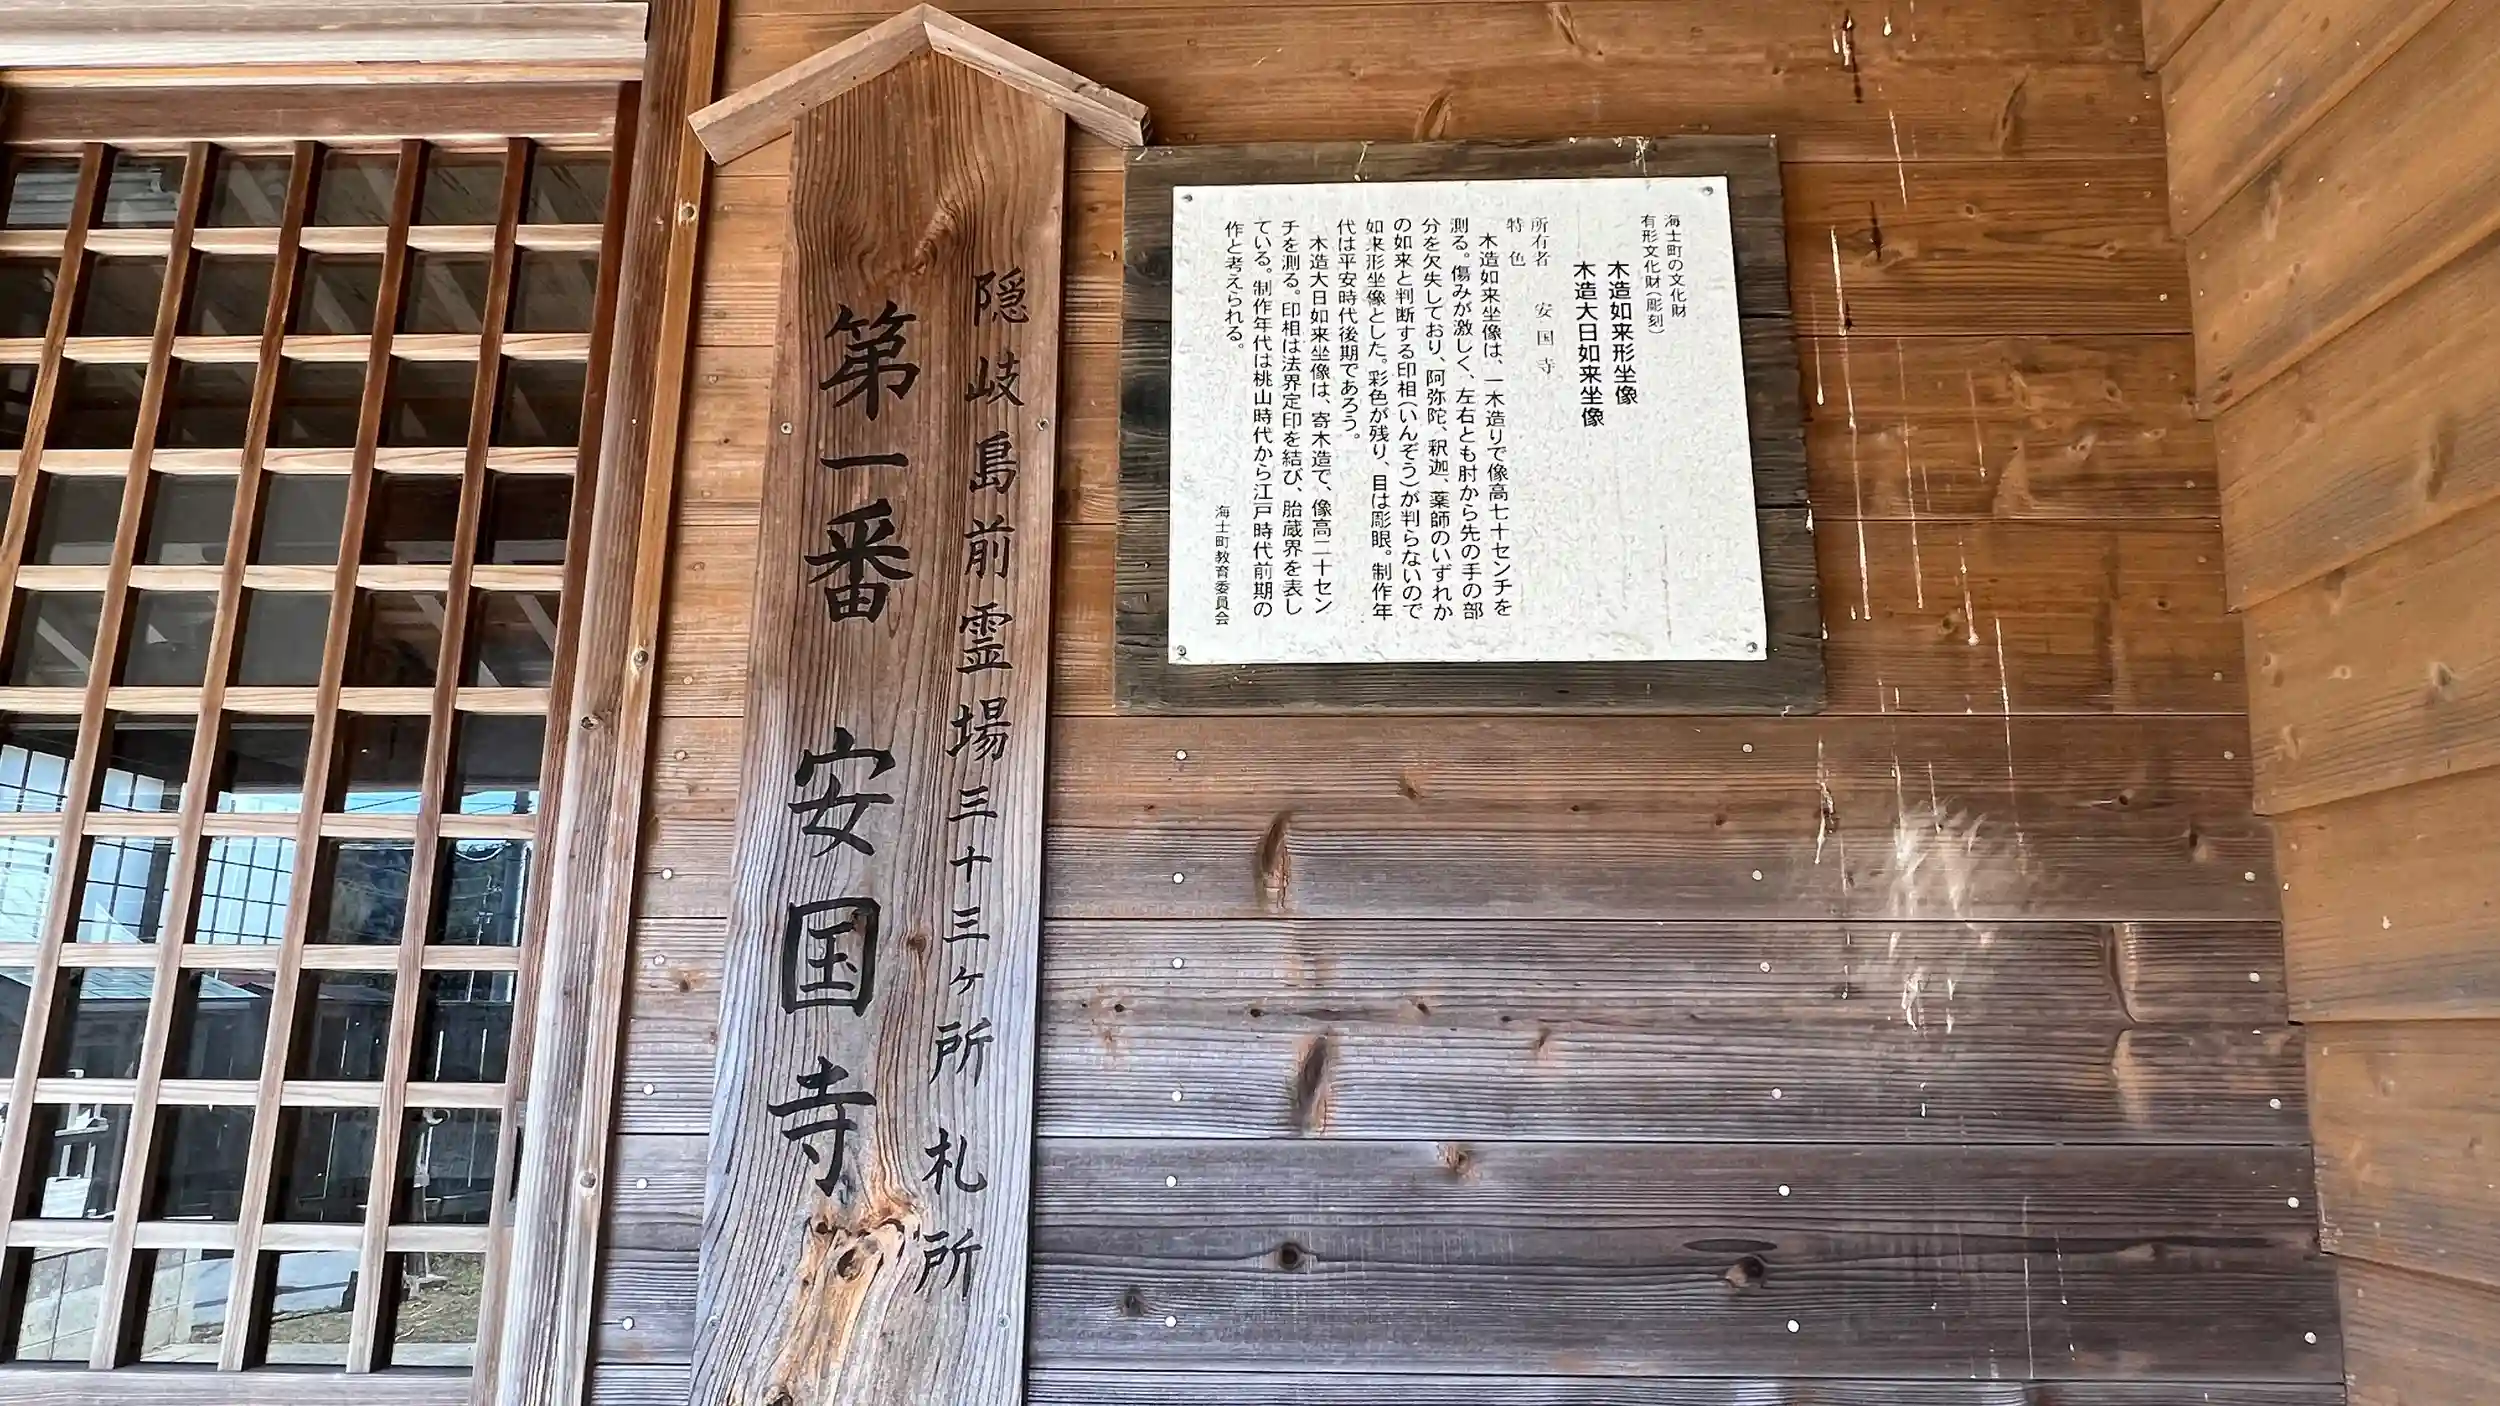 隠岐島前霊場三十三ヶ所札所
第一番 安国寺
海士町の文化財
有形文化財(彫刻)
木造如来形坐像
木造大日如来坐像
所有者 安国寺
特色
木造如来坐像は、一木造りで像高七十センチを
測る。傷みが激しく、左右とも肘から先の手の部
分を欠失しており、阿弥陀、釈迦、薬師のいずれか
の如来と判断する印相(いんぞう)が判らないので
如来形坐像とした。彩色が残り、目は彫眼。制作年
代は平安時代後期であろう。
木造大日如来坐像は、寄木造で、像高二十セン
チを測る。印相は法界定印を結び、胎蔵界を表し
ている。制作年代は桃山時代から江戸時代前期の
作と考えられる。
海士町教育委員会